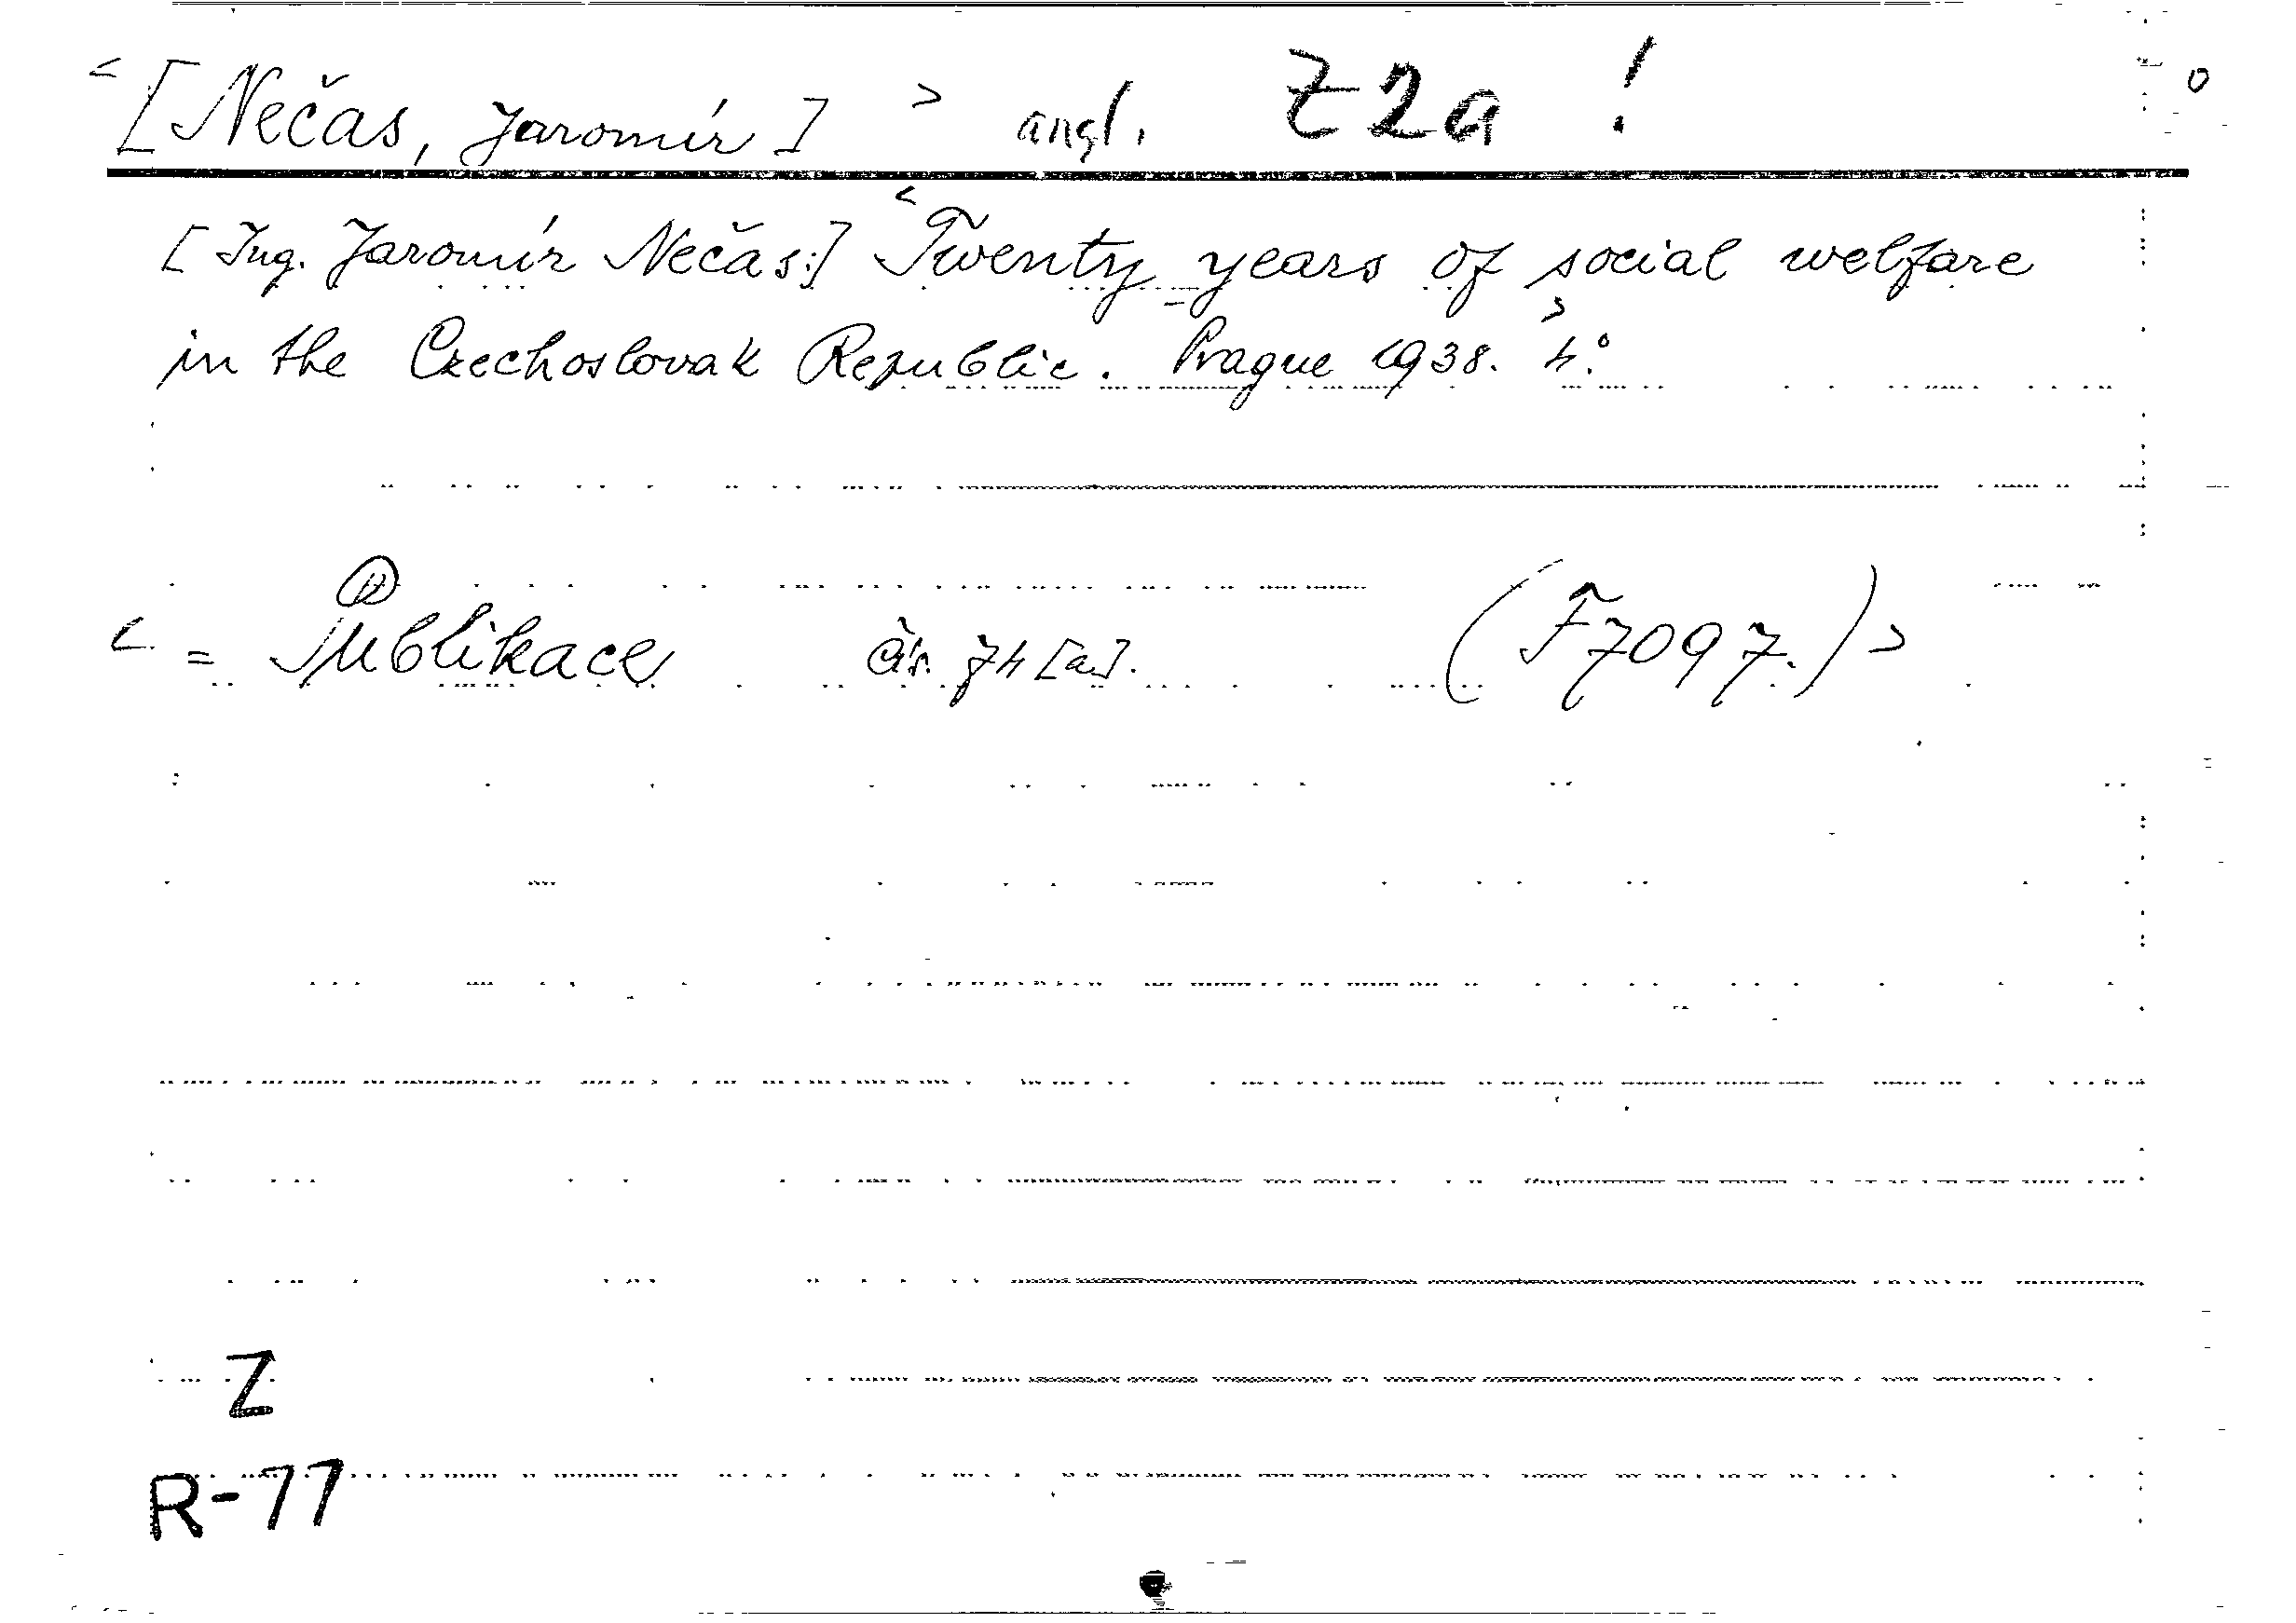 < [Nečas, Jaromír] > angl. Z2a !
[Ing. Jaromír Nečas:] < Twenty years of social welfare
in the Czechoslovak Republic. Prague 1938. > 4°.
< = Publikace čís. 74 [a]. (F7097.) >
Z
R-77